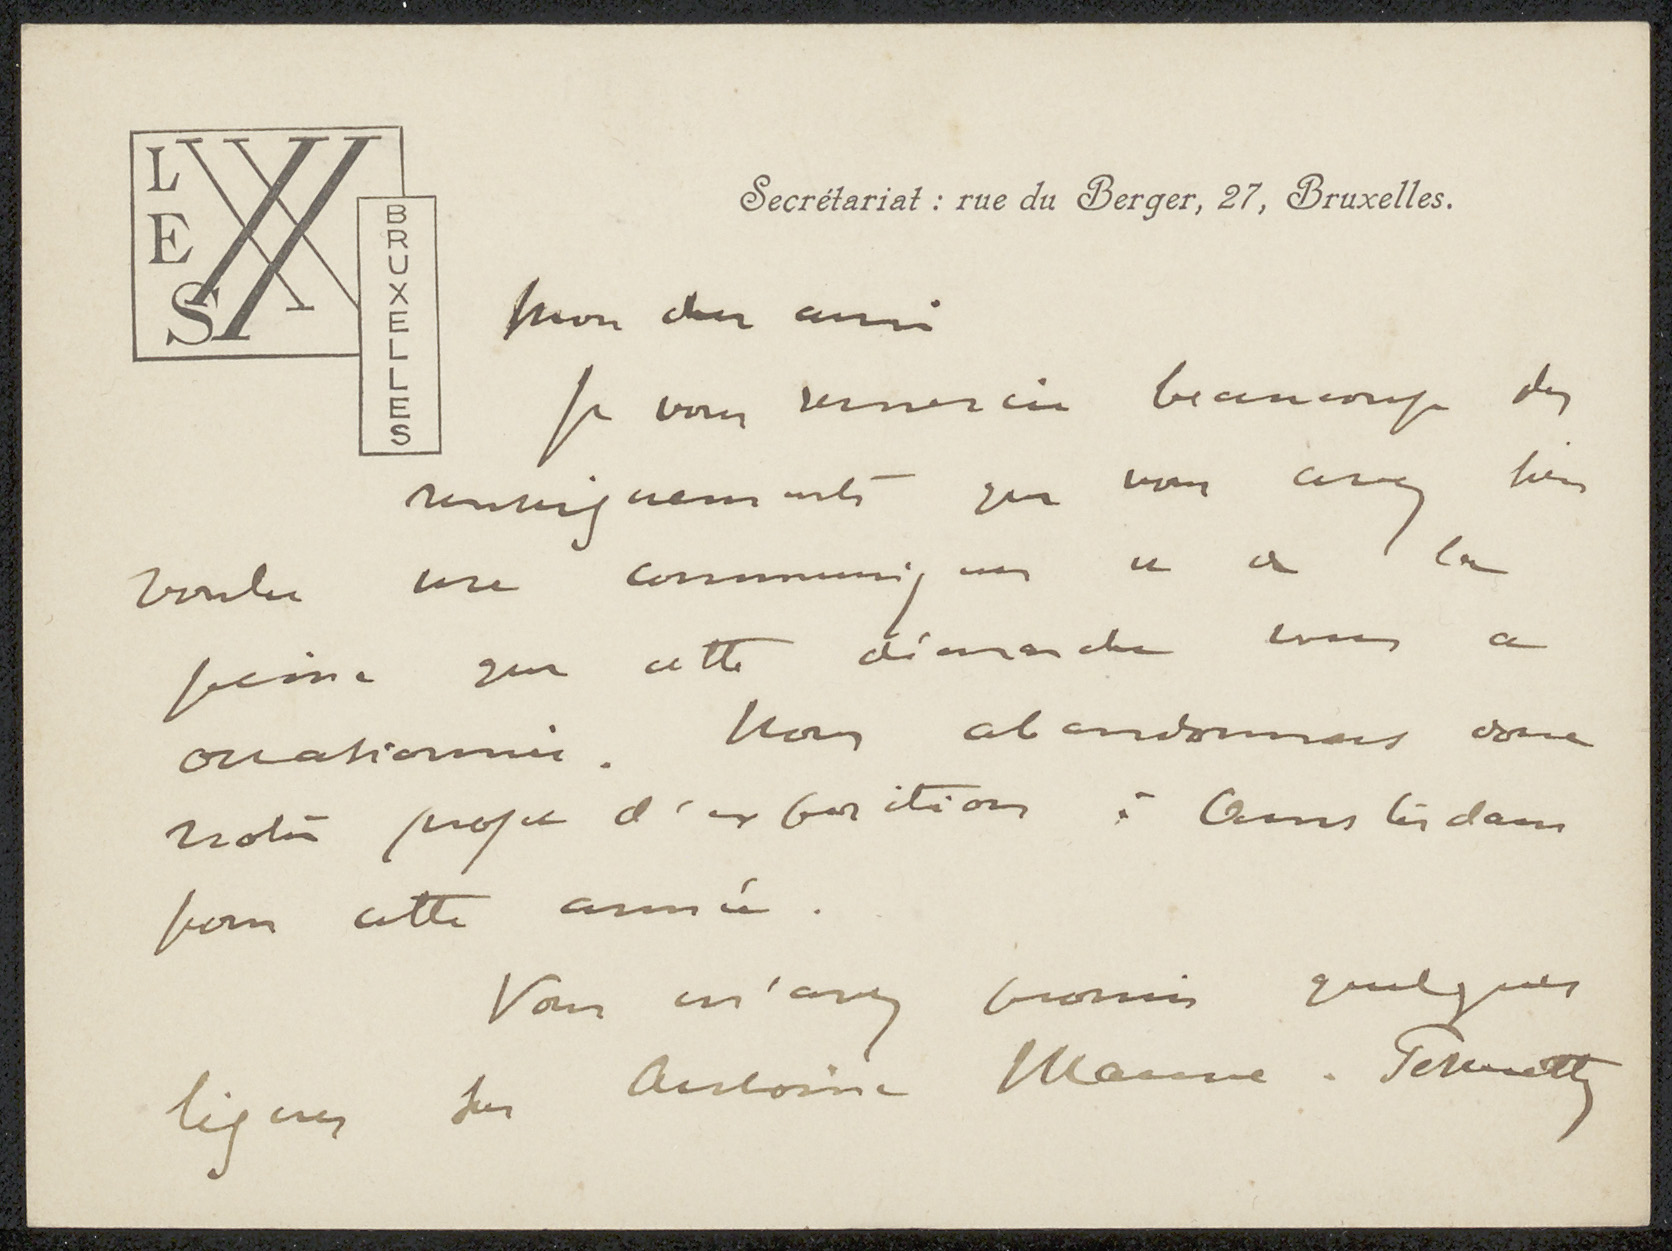 LES XX
BRUXELLES
Secrétariat : rue du Berger, 27, Bruxelles.
Mon cher ami
Je vous remercie beaucoup des
renseignements que vous avez bien
voulu me communiquer et de la
peine que cette démarche vous a
occasionnée. Nous abandonnons donc
notre projet d'exposition à Amsterdam
pour cette année.
Vous m'avez promis quelques
lignes sur Antoine Mauve. Permettez